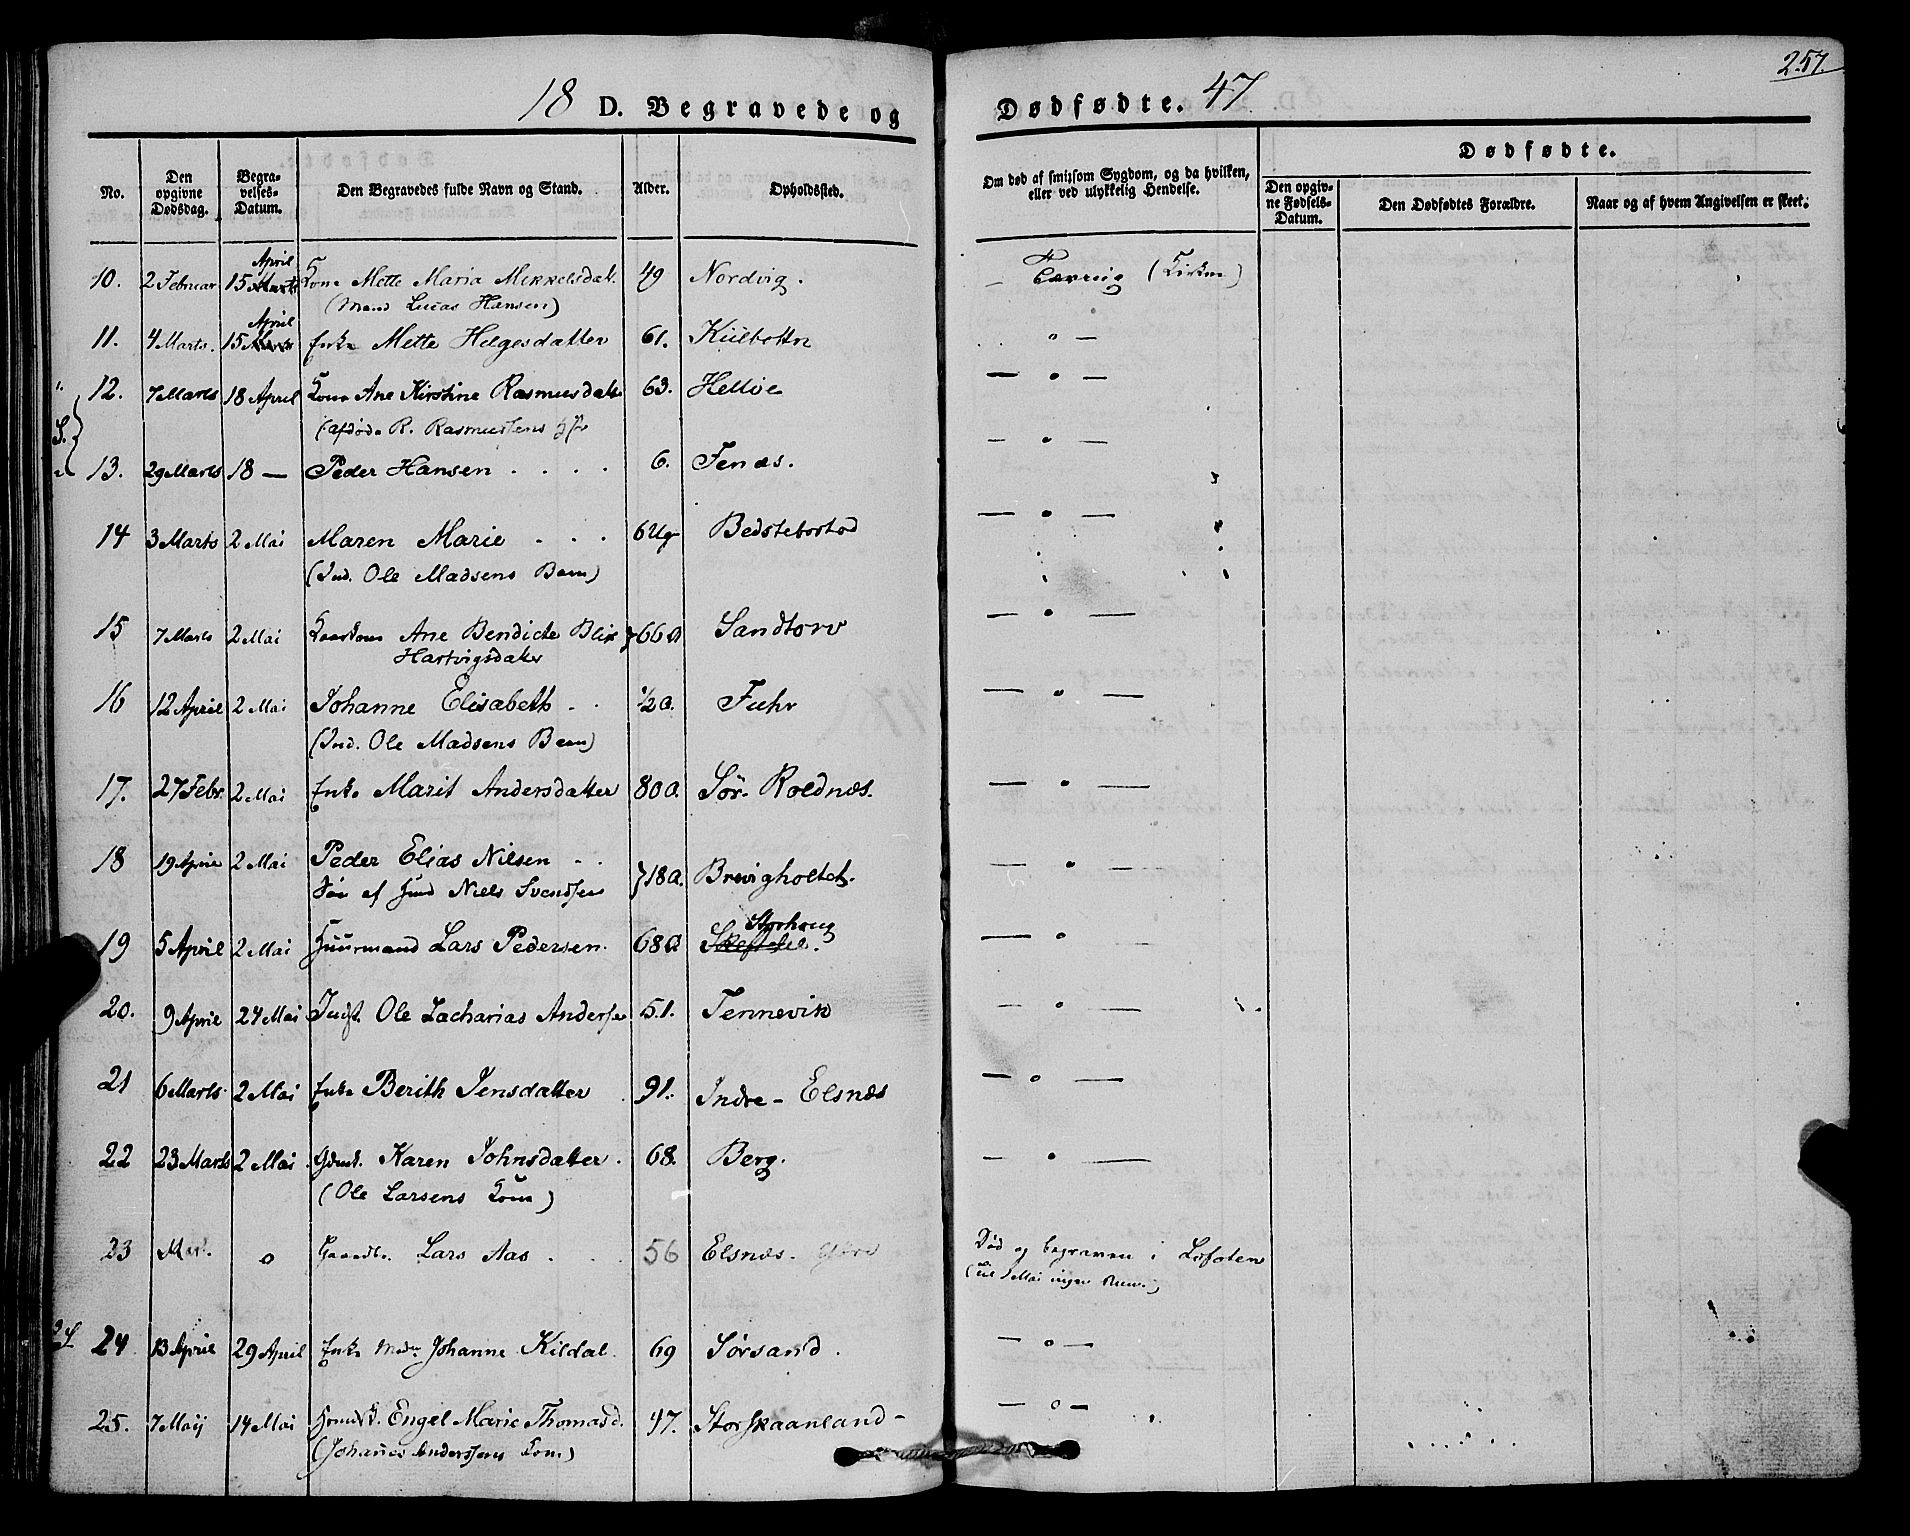 257.
18 D. Begravede og Dødfødte. 47
No.
Den opgivne Dødsdag.
Begravelses-Datum.
Den Begravedes fulde Navn og Stand.
Alder.
Opholdssted.
Om død af smitsom Sygdom, og da hvilken, eller ved ulykkelig Hendelse.
Dødfødte.
Den opgivne Fødsels-Datum.
Den Dødfødtes Forældre.
Naar og af hvem Angivelsen er skeet.
April
10. 2 Februar 15 Marts Kone Mette Maria Mikkelsdat. 49 Nordvig.
(Mand Lucas Hansen)
April
11. 4 Marts. 15 Marts Enke Mette Helgesdatter 61. Kiilbottn " —
12. 7 Marts 18 April Kone Ane Kirstine Rasmusdatt 63. Helløe — " —
(afdøde R. Rasmussens
S.
13. 29 Marts 18 — Peder Hansen . . . . 6. Fenæs. — " —
14 3 Marts 2 Mai Maren Marie . . . 6 Ug Bedstebostad — " —
(Ind. Ole Madsens Barn)
15 7 Marts 2 Mai Ane Bendicte Blix 66 A Sandtorv — " —
Hartvigsdatter
16 12 April 2 Mai Johanne Elisabeth . . ½ a. Fuhr — " —
(Ind. Ole Madsens Barn)
17. 27 Febr. 2 Mai Enke Marit Andersdatter 80 a. Sør-Roldnæs. — " —
18 19 April 2 Mai Peder Elias Nilsen . . 18 a. Brevigholtet. — " —
Søn af Huusmd Niels Svendsen
Storhaug
19 5 April 2 Mai Huusmand Lars Pedersen. 68 A — " —
20. 9 April 24 Mai Indst. Ole Zacharias Andersen 51. Tennevik — " —
21 6 Marts 2 Mai Enke Berith Jensdatter 91. Indre-Elsnæs — " —
22 23 Marts 2 Mai Gdmd. Karen Johnsdatter. 68. Berg. — " —
(Ole Larsens Kone)
23 Mart. " Lars Aas . . 56 Elsnæs. Død og begraven i Lofoten
24 13 April 29 April Enke Johanne Kildal. 69 Sørsand. — " —
25. 7 Maij 14 Mai Engel Marie Thomasd. 47. Storskaanland — " —
(Johanes Anderssens Kone)